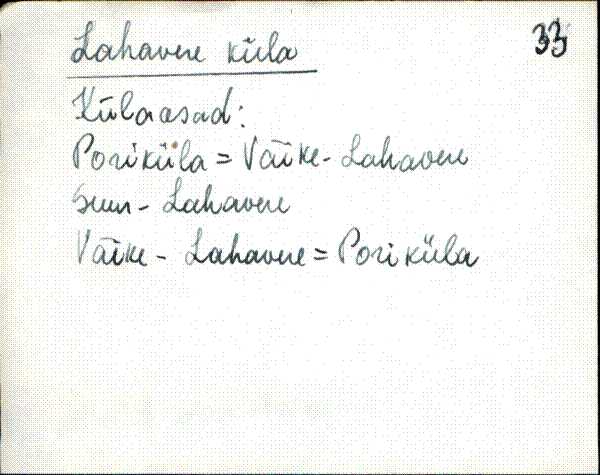 Lahavere küla 33
Külaosad:
Poriküla = Väike-Lahavere
Suur-Lahavere
Väike-Lahavere = Poriküla